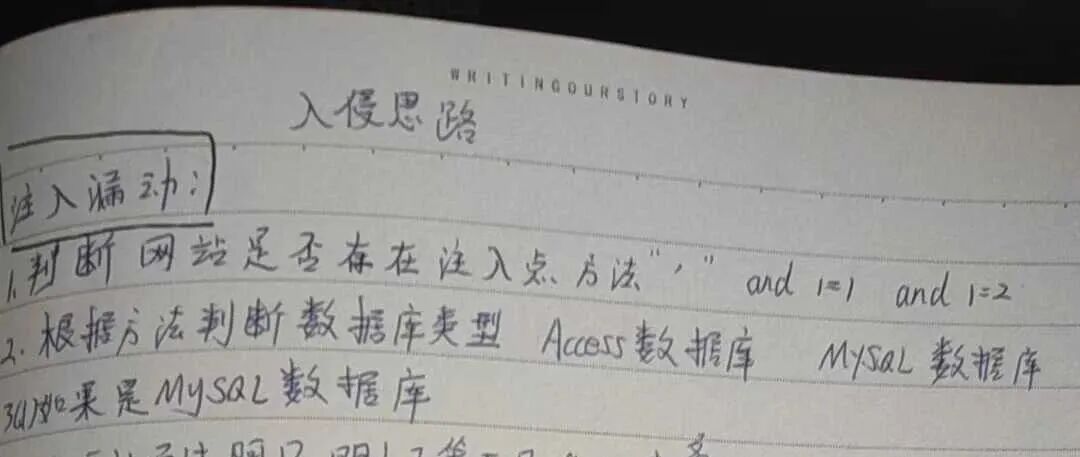 WRITINGOURSTORY
入侵思路
注入漏动:
1.判断网站是否存在注入点方法“ ' ” and 1=1 and 1=2
2.根据方法判断数据库类型 Access数据库 MySQL数据库
3(1)如果是MySQL数据库